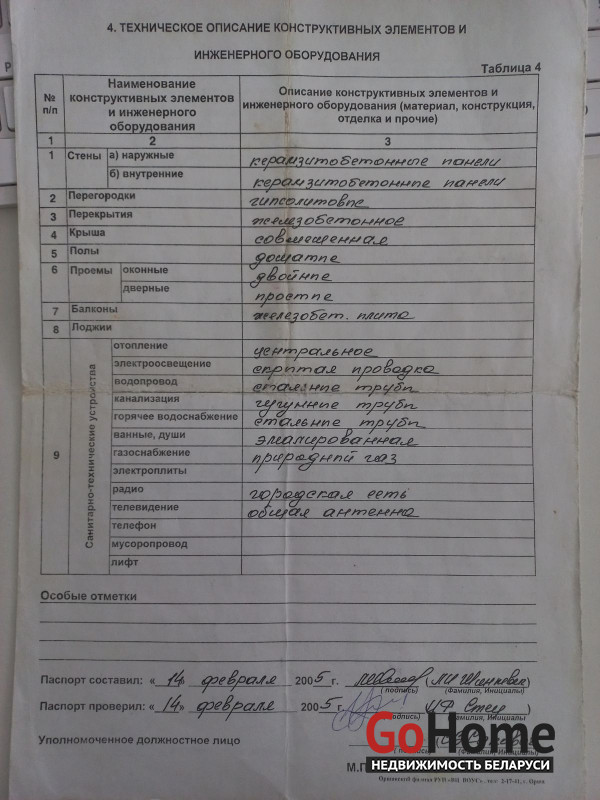 4. ТЕХНИЧЕСКОЕ ОПИСАНИЕ КОНСТРУКТИВНЫХ ЭЛЕМЕНТОВ И
ИНЖЕНЕРНОГО ОБОРУДОВАНИЯ
Таблица 4
№ п/п
Наименование конструктивных элементов и инженерного оборудования
Описание конструктивных элементов и инженерного оборудования (материал, конструкция, отделка и прочие)
1 2 3
1 Стены а) наружные керамзитобетонные панели
б) внутренние керамзитобетонные панели
2 Перегородки гипсолитовые
3 Перекрытия железобетонное
4 Крыша совмещенная
5 Полы дощатые
6 Проемы оконные двойные
дверные простые
7 Балконы железобет. плита
8 Лоджии
9 Санитарно-технические устройства
отопление центральное
электроосвещение скрытая проводка
водопровод стальные трубы
канализация чугунные трубы
горячее водоснабжение стальные трубы
ванные, души эмалированная
газоснабжение природный газ
электроплиты
радио городская сеть
телевидение общая антенна
телефон
мусоропровод
лифт
Особые отметки
Паспорт составил: «14» февраля 2005 г.
( подпись) (Фамилия, Инициалы)
Паспорт проверил: «14» февраля 2005 г.
(подпись) (Фамилия, Инициалы)
Уполномоченное должностное лицо
М.П
GoHome
НЕДВИЖИМОСТЬ БЕЛАРУСИ